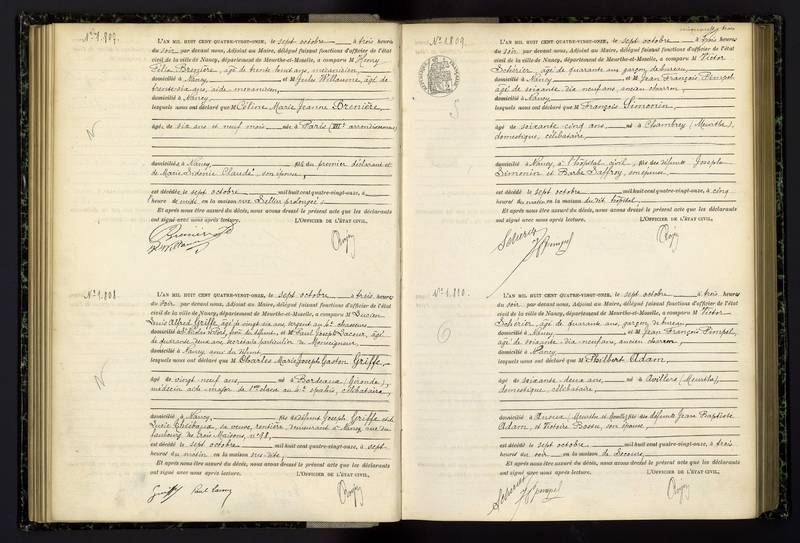 N° 1.807.
L'AN MIL HUIT CENT QUATRE-VINGT-ONZE, le sept octobre à trois heures
du soir par devant nous, Adjoint au Maire, délégué faisant fonctions d'officier de l'état
civil de la ville de Nancy, département de Meurthe-et-Moselle, a comparu M Henry
Félix Brenière, âgé de trente huit ans, mécanicien
domicilié à Nancy et M Jules Willaume, âgé de
trente-six ans, aide mécanicien,
domicilié à Nancy
lesquels nous ont déclaré que M Céline Marie Jeanne Brenière,
âgée de six ans et neuf mois née à Paris arrondissement
domiciliée à Nancy, fille du premier déclarant et
de Marie Sidonie Claude, son épouse,
est décédée le sept octobre mil huit cent quatre-vingt-onze, à
heure de midi en la maison rue Sellier prolongée
Et après nous être assuré du décès, nous avons dressé le présent acte que les déclarants
ont signé avec nous après lecture. L'OFFICIER DE L'ÉTAT CIVIL,
N° 1.808.
L'AN MIL HUIT CENT QUATRE-VINGT-ONZE, le sept octobre à trois heures
du soir par devant nous, Adjoint au Maire, délégué faisant fonctions d'officier de l'état
civil de la ville de Nancy, département de Meurthe-et-Moselle, a comparu M Lucien
Louis Alfred Griffe, âgé de vingt six ans, sergent au 4e chasseurs
et M Paul Joseph Lacour, âgé
de quarante deux ans, secrétaire particulier de Monseigneur,
domicilié à Nancy, ami du défunt
lesquels nous ont déclaré que M Charles Marie Joseph Gaston Griffe,
âgé de vingt neuf ans, né à Bordeaux (Gironde),
médecin aide-major de 1ère classe au 4e spahis, célibataire,
domicilié à Nancy, fils de défunt Joseph Griffe et de
Lucie sa veuve, rentière, demeurant à Nancy rue du
faubourg des Trois Maisons, n° 98,
est décédé le sept octobre mil huit cent quatre-vingt-onze, à sept
heures du matin en la maison sus-dite,
Et après nous être assuré du décès, nous avons dressé le présent acte que les déclarants
ont signé avec nous après lecture. L'OFFICIER DE L'ÉTAT CIVIL,
N° 1.809.
L'AN MIL HUIT CENT QUATRE-VINGT-ONZE, le sept octobre à trois heures
du soir par devant nous, Adjoint au Maire, délégué faisant fonctions d'officier de l'état
civil de la ville de Nancy, département de Meurthe-et-Moselle, a comparu M Victor
Scherier, âgé de quarante ans, garçon de bureau,
domicilié à Nancy et M Jean François Pimpel,
âgé de soixante dix neuf ans, ancien charron,
domicilié à Nancy
lesquels nous ont déclaré que M François Simonin,
âgé de soixante cinq ans, né à Chambrey (Meurthe),
domestique, célibataire,
domicilié à Nancy, à l'hôpital civil, fils des défunts Joseph
Simonin et Barbe Jaffroy, son épouse
est décédé le sept octobre mil huit cent quatre-vingt-onze, à cinq
heures du matin en la maison du dit hôpital,
Et après nous être assuré du décès, nous avons dressé le présent acte que les déclarants
ont signé avec nous après lecture. L'OFFICIER DE L'ÉTAT CIVIL,
N° 1.810.
L'AN MIL HUIT CENT QUATRE-VINGT-ONZE, le sept octobre à trois heures
du soir par devant nous, Adjoint au Maire, délégué faisant fonctions d'officier de l'état
civil de la ville de Nancy, département de Meurthe-et-Moselle, a comparu M Victor
Scherier, âgé de quarante ans, garçon de bureau
domicilié à Nancy et M Jean François Pimpel,
âgé de soixante dix neuf ans, ancien charron,
domicilié à Nancy
lesquels nous ont déclaré que M Philbert Adam,
âgé de soixante deux ans, né à Avillers (Meurthe),
domestique, célibataire,
domicilié à (Meurthe et Moselle) fils des défunts Jean Baptiste
Adam, et Victoire Bossu, son épouse,
est décédé le sept octobre mil huit cent quatre-vingt-onze, à trois
heures du soir en la maison de Secours,
Et après nous être assuré du décès, nous avons dressé le présent acte que les déclarants
ont signé avec nous après lecture. L'OFFICIER DE L'ÉTAT CIVIL,